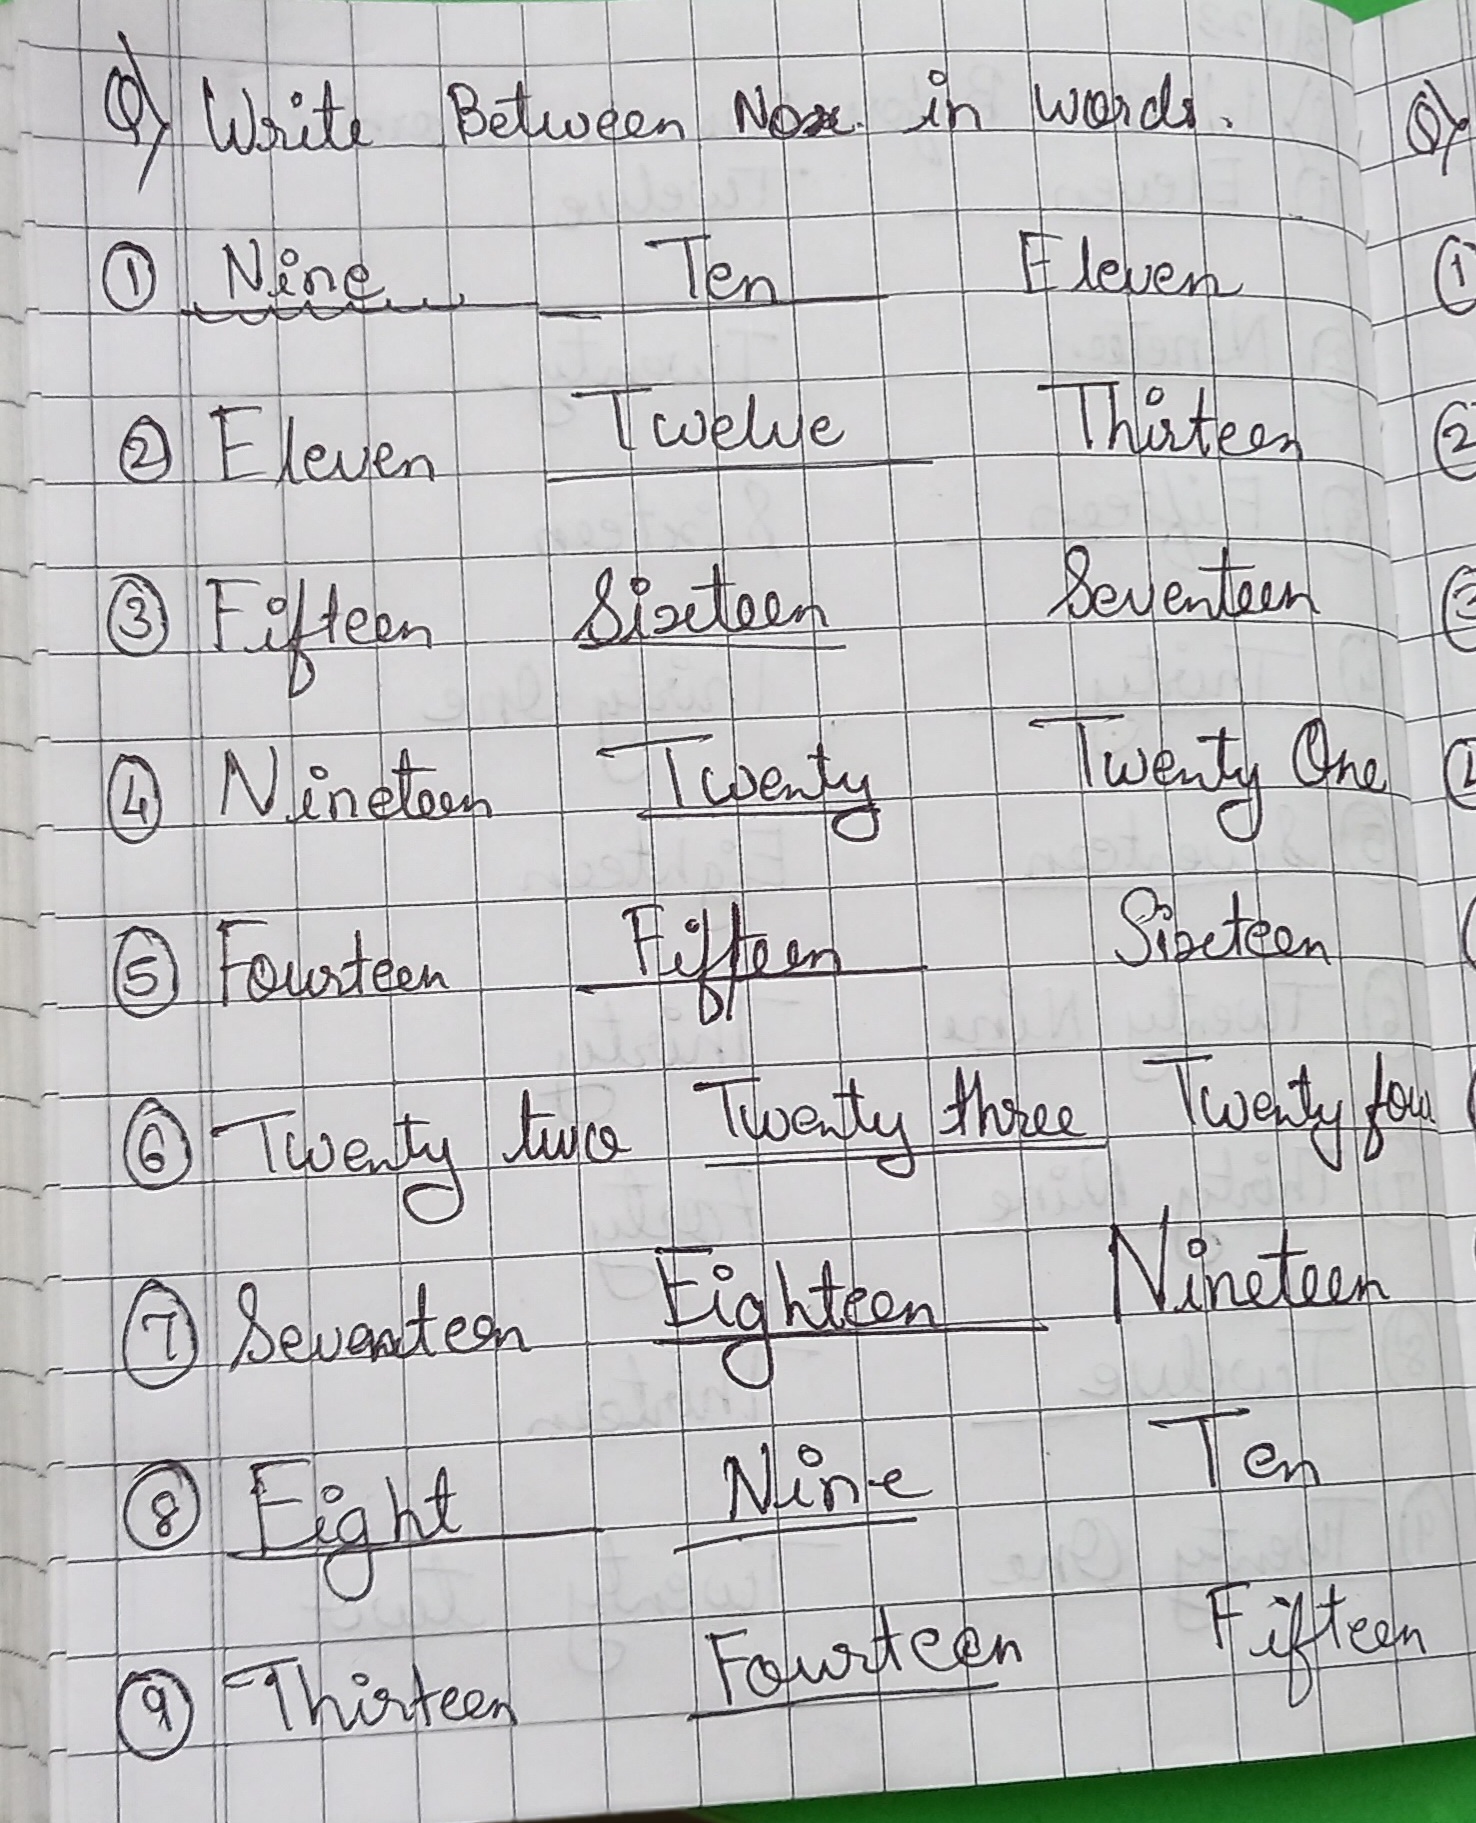 Q) Write Between Nos. in words.
① Nine Ten Eleven
② Eleven Twelve Thirteen
③ Fifteen Sixteen Seventeen
④ Nineteen Twenty Twenty One
⑤ Fourteen Fifteen Sixteen
⑥ Twenty two Twenty three Twenty fou
⑦ Seventeen Eighteen Nineteen
⑧ Eight Nine Ten
⑨ Thirteen Fourteen Fifteen
Q)
①
②
③